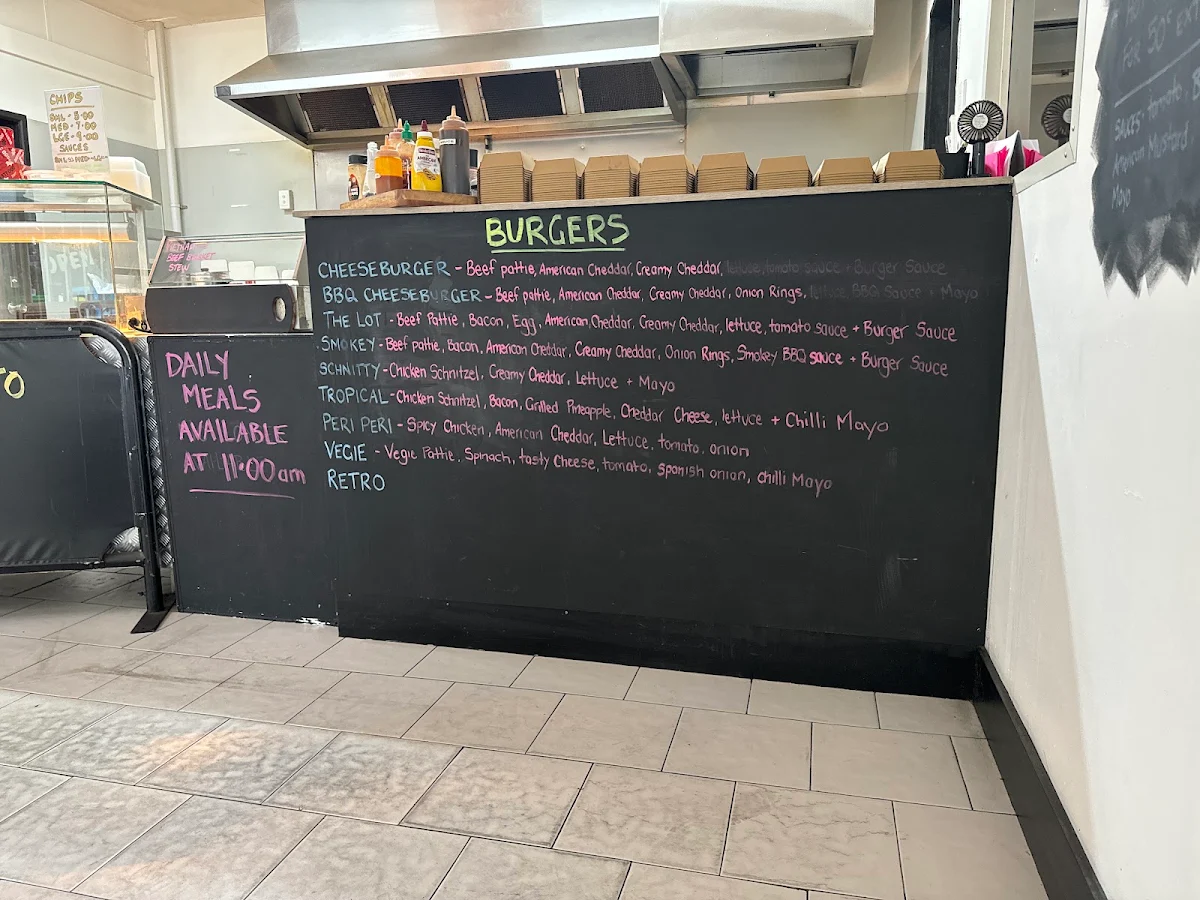 CHIPS
SML - 5.00
MED - 7.00
LGE - 9.00
SAUCES
BEEF
STEW
OPEN
TO
DAILY
MEALS
AVAILABLE
AT 11:00am
BURGERS
CHEESEBURGER - Beef pattie, American Cheddar, Creamy Cheddar, lettuce, tomato sauce + Burger Sauce
BBQ CHEESEBURGER - Beef pattie, American Cheddar, Creamy Cheddar, Onion Rings, lettuce BBQ Sauce + Mayo
THE LOT - Beef Pattie, Bacon, Egg, American Cheddar, Creamy Cheddar, lettuce, tomato sauce + Burger Sauce
SMOKEY - Beef pattie, Bacon, American Cheddar, Creamy Cheddar, Onion Rings, Smokey BBQ sauce + Burger Sauce
SCHNITTY - Chicken Schnitzel, Creamy Cheddar, Lettuce + Mayo
TROPICAL - Chicken Schnitzel, Bacon, Grilled Pineapple, Cheddar Cheese, lettuce + Chilli Mayo
PERI PERI - Spicy Chicken, American Cheddar, Lettuce, tomato, onion
VEGIE - Vegie Pattie, Spinach, tasty Cheese, tomato, spanish onion, chilli Mayo
RETRO
FOR 50c
SAUCES - tomato,
American Mustard
Mayo